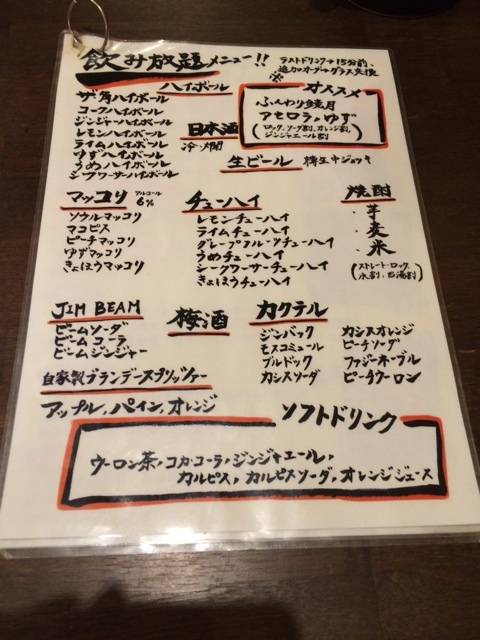 飲み放題メニュー!!
ラストドリンク→15分前、
追加オーダー→グラス交換
※
ハイボール
ザ・角ハイボール
コークハイボール
ジンジャーハイボール
レモンハイボール
ライムハイボール
ゆずハイボール
うめハイボール
シークワーサーハイボール
オススメ
ふんわり鏡月
アセロラ・ゆず
(ロック、ソーダ割、オレンジ割、
ジンジャエール割)
日本酒
冷・燗
生ビール 樽生中ジョッキ
マッコリ アルコール6%
ソウルマッコリ
マコピス
ピーチマッコリ
ゆずマッコリ
きょほうマッコリ
チューハイ
レモンチューハイ
ライムチューハイ
グレープフルーツチューハイ
うめチューハイ
シークワーサーチューハイ
きょほうチューハイ
焼酎
・芋
・麦
・米
(ストレート・ロック、
水割・お湯割)
JIM BEAM
ビームソーダ
ビームコーラ
ビームジンジャー
梅酒
カクテル
ジンバック
モスコミュール
ブルドック
カシスソーダ
カシスオレンジ
ピーチソーダ
ファジーネーブル
ピーチウーロン
自家製ブランデースプリッツァー
アップル、パイン、オレンジ
ソフトドリンク
ウーロン茶、コカ・コーラ、ジンジャエール、
カルピス、カルピスソーダ、オレンジジュース